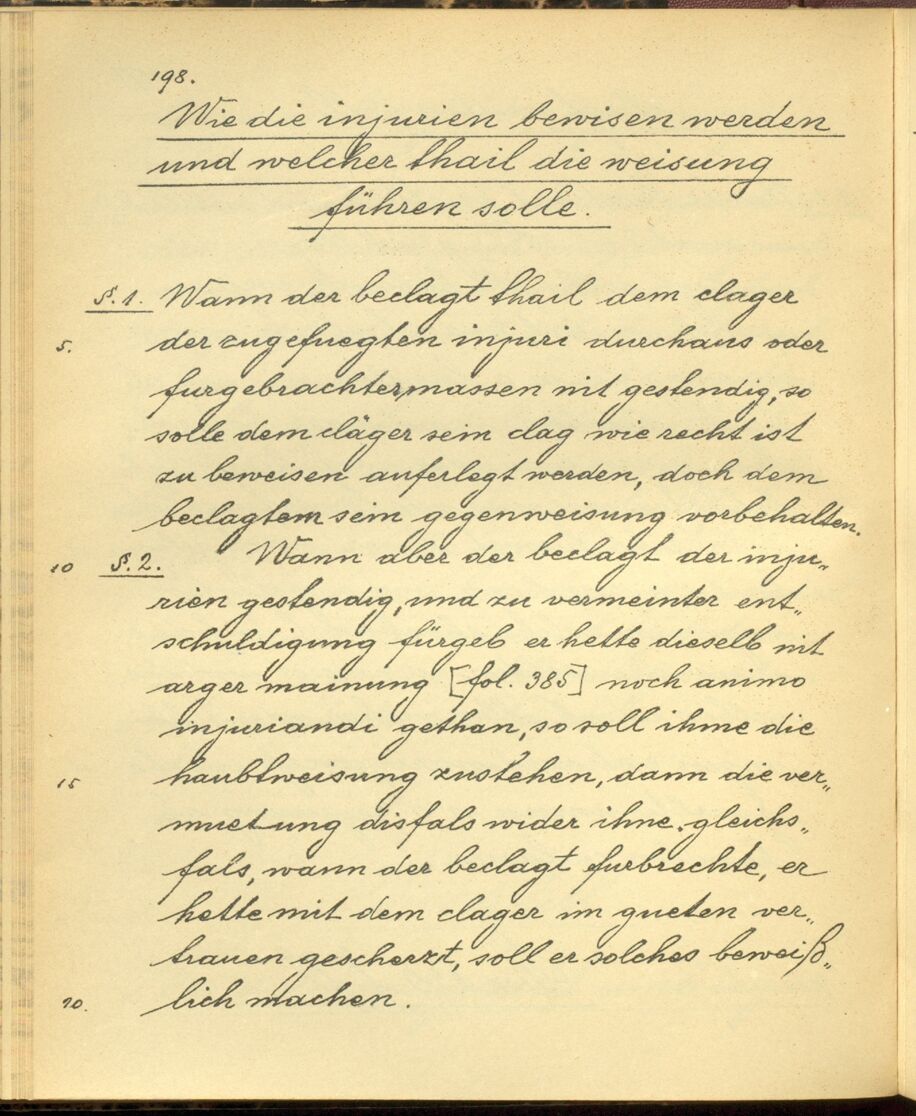 198.
Wie die injurien bewisen werden
und welcher thail die weisung
führen solle.
§. 1. Wann der beclagt thail dem clager
5. der zugefuegten injuri durchaus oder
furgebrachtermassen nit gestendig, so
solle dem cläger sein clag wie recht ist
zu beweisen auferlegt werden, doch dem
beclagtem sein gegenweisung vorbehalten.
10 §. 2. Wann aber der beclagt der inju„
rien gestendig, und zu vermeinter ent„
schuldigung fürgeb er hette dieselb nit
arger mainung [fol. 385] noch animo
injuriandi gethan, so soll ihme die
15 haubtweisung zustehen, dann die ver„
muetung disfals wider ihne. gleichs„
fals, wann der beclagt furbrechte, er
hette mit dem clager im gueten ver„
trauen gescherzt, soll er solches beweiß„
20. lich machen.